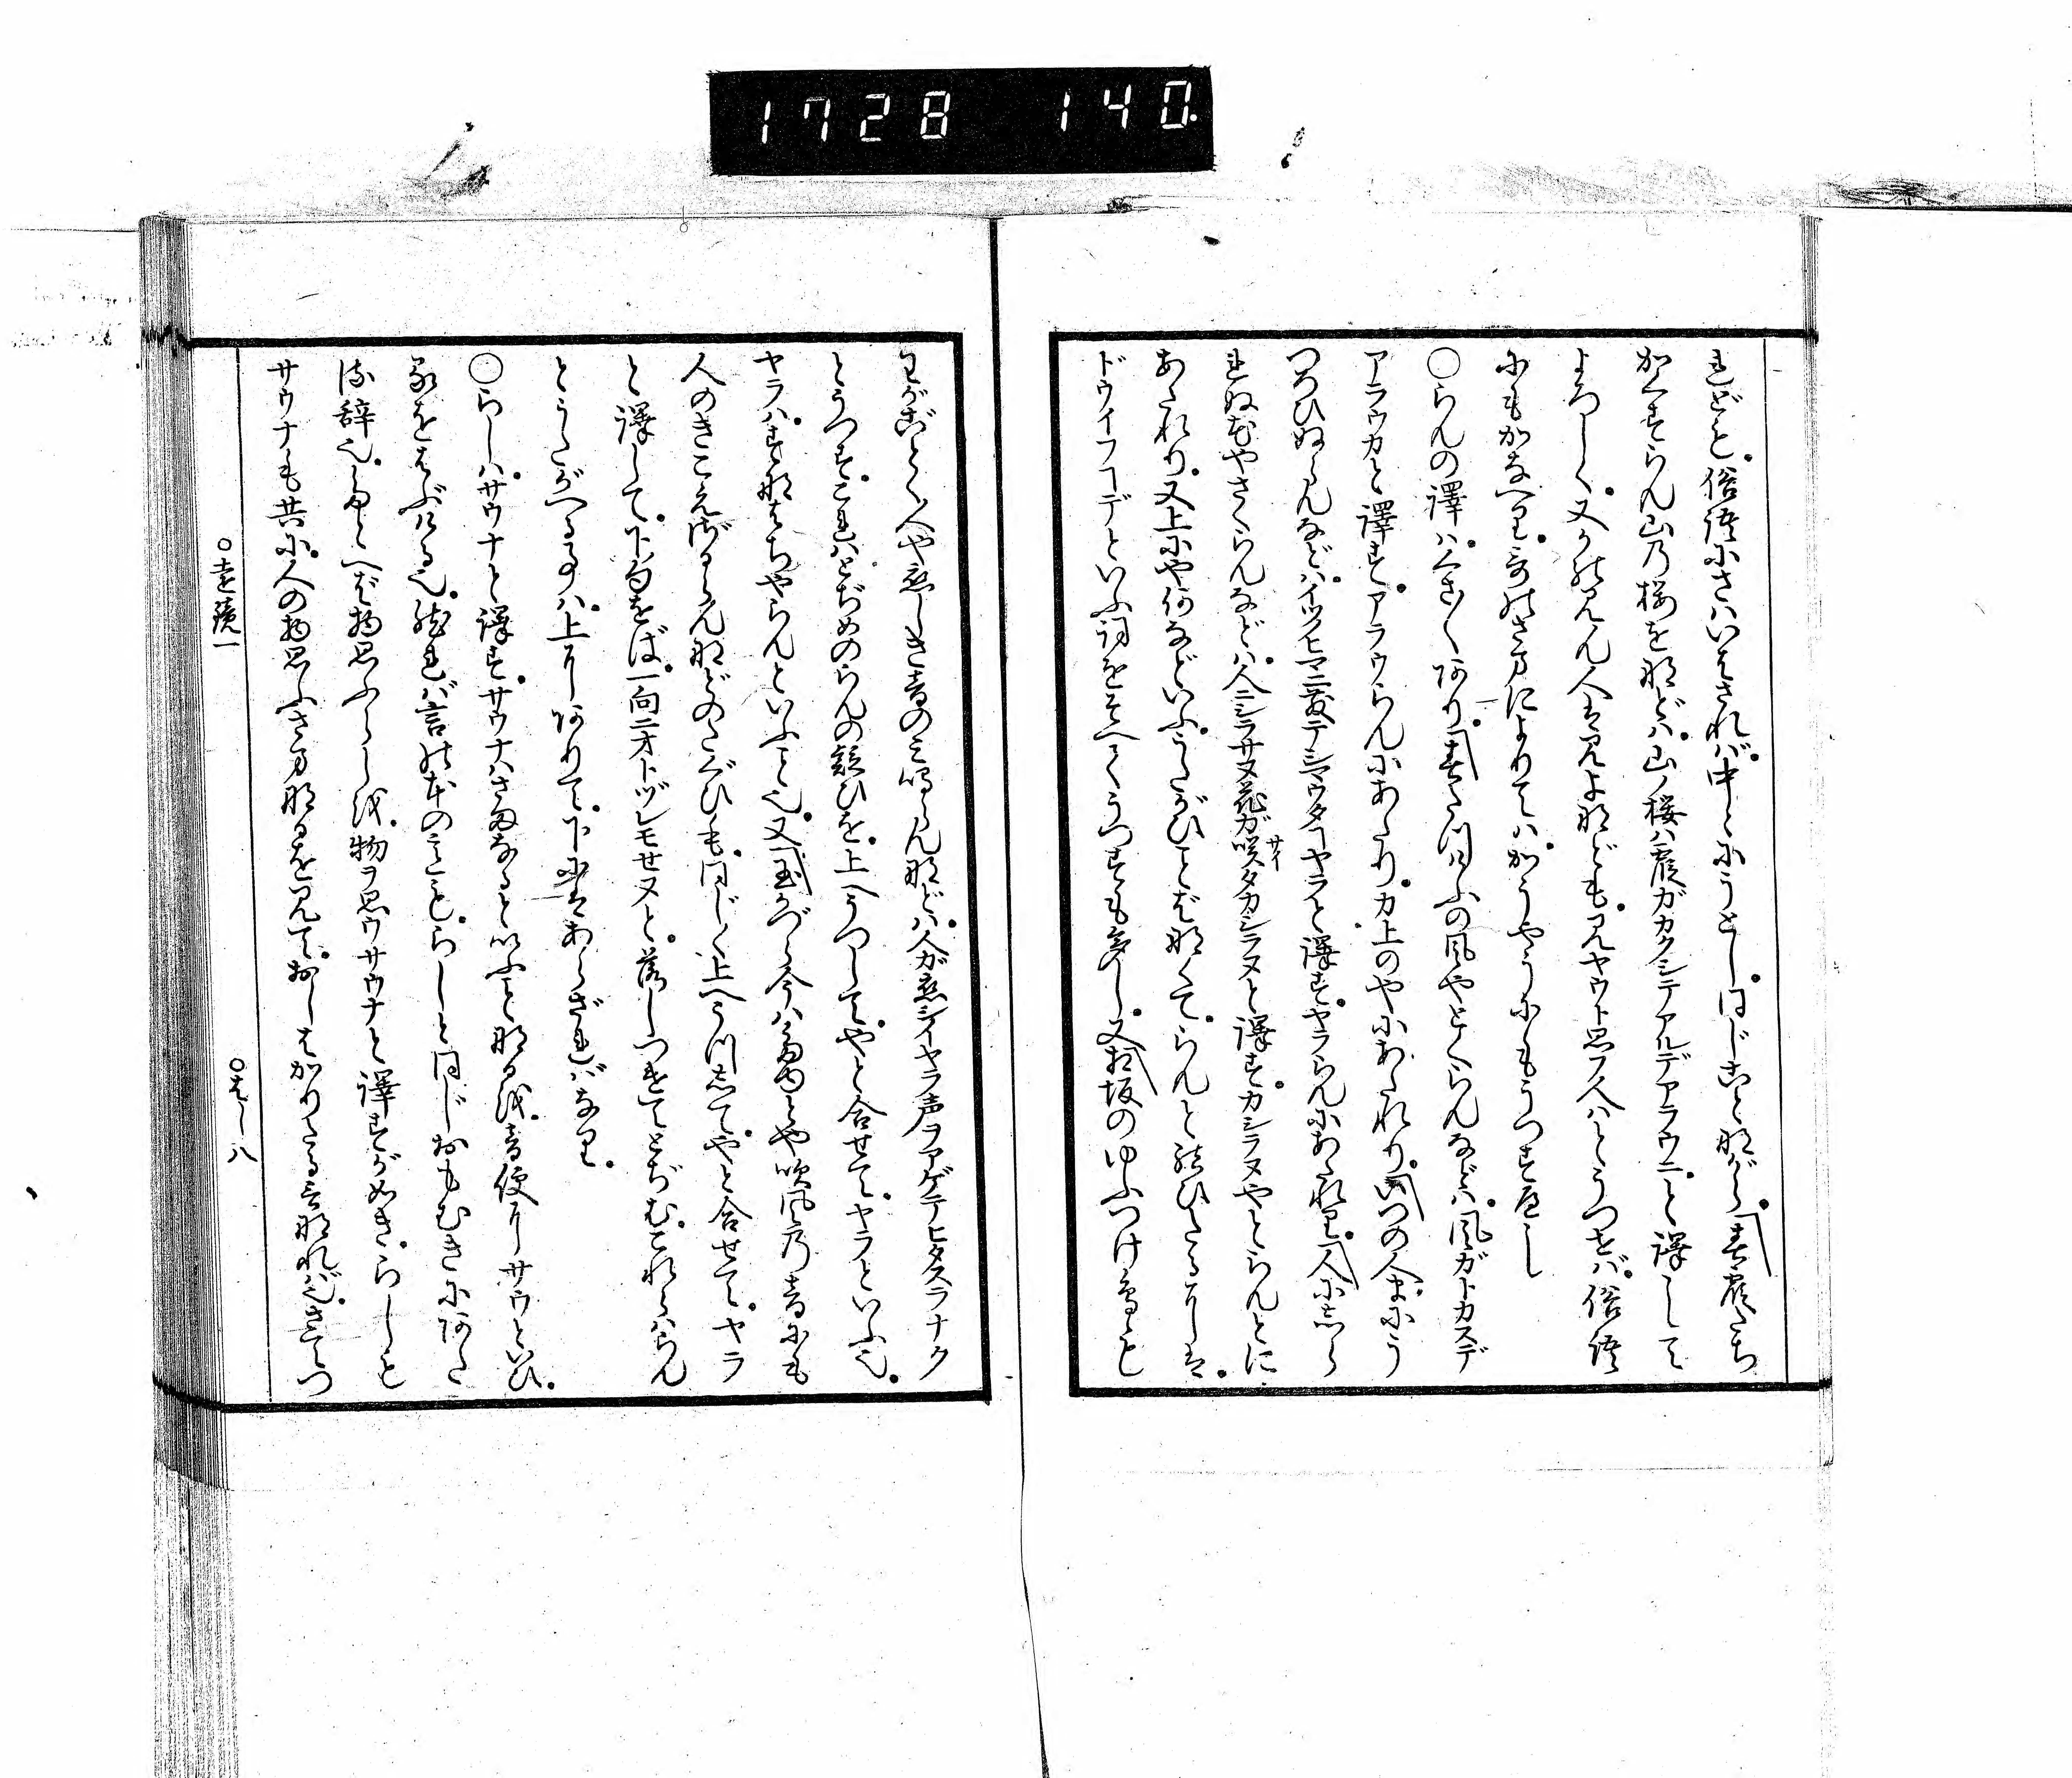 1728 140
れども。俗語にさはいはされば。中々にうとし。同じことながら。「春霞たち
かくすらん山の桜をなどは。山ノ桜ハ霞ガカクシテアルデアラウニ。と譯して
よろしく。又かの見ん人は見よなども。見ヤウト思フ人ハとうつせば。俗語
にもかなへり。歌のさまによりては。かうやうにもうつすべし
○らんの譯は。くさ〴〵あり。「春たつけふの風やとくらんなどは。風ガトカスデ
アラウカと譯す。アラウらんにあたり。カ上のやにあたれり。「いつの人まにう
つろひぬらんなどは。イツノヒマニ散テシマウタヿヤラと譯す。ヤラらんにあたれり。「人にしら
れぬ花やさくらんなどは。人ニシラサヌ花ガ咲タカシラヌと譯す。カシラヌやとらんとに
サイ
あたれり。又上にや何などいふ。うたがひことばなくて。らんと結びたるには。
ドウイフヿデといふ詞をそへてうつすも多し。又「相坂のゆふつけ鳥も
わがごとく人や恋しき音のみ鳴らんなどは。人ガ恋シイヤラ声ヲアゲテヒタスラナク
とうつす。これはとぢめのらんの疑ひを。上へうつして。やと合せて。ヤラといふ也。
ヤラハ。すなはちやらんといふこと也。又「玉かづら今はたゆとや吹風の音にも
人のきこえざるらんなどのたぐひも。同じく上へうつして。やと合せて。ヤラ
と譯して。下句をば。一向ニオトヅレモセヌと。落しつけてとぢむ。これらはらん
とうたがへる事は。上にありて。下にはあらざればなり。
○らしは。サウナと譯す。サウナはさまなるといふことなるを。音便にサウといひ。
るをはぶける也。然れば言の本の意も。らしと同じおもむきにあた
る辞也。たとへば物思ふらしを。物ヲ思ウサウナと譯すが如き。らしも
サウナも共に。人の物思ふさまなるを見て。おしはかりたる言なれば也。さてつ
○遠鏡一
○はし八